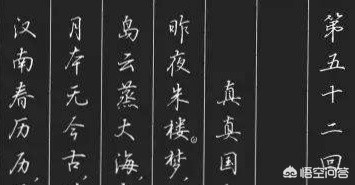 第五十二回
真真国
昨夜朱楼。梦，
岛云蒸大海，
月本无今古，
汉南春历历，
悟空问答